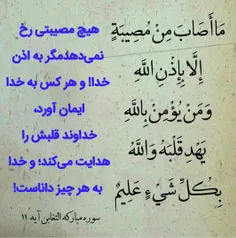 مَا أَصَابَ مِنْ مُصِيبَةٍ
إِلَّا بِإِذْنِ اللَّهِ
وَمَنْ يُؤْمِنْ بِاللَّهِ
يَهْدِ قَلْبَهُ وَاللَّهُ
بِكُلِّ شَيْءٍ عَلِيمٌ
هیچ مصیبتی رخ
نمی‌دهدمگر به اذن
خدا! و هر کس به خدا
ایمان آورد،
خداوند قلبش را
هدایت می‌کند؛ و خدا
به هر چیز داناست!
سوره مبارکه التغابن آیه ۱۱